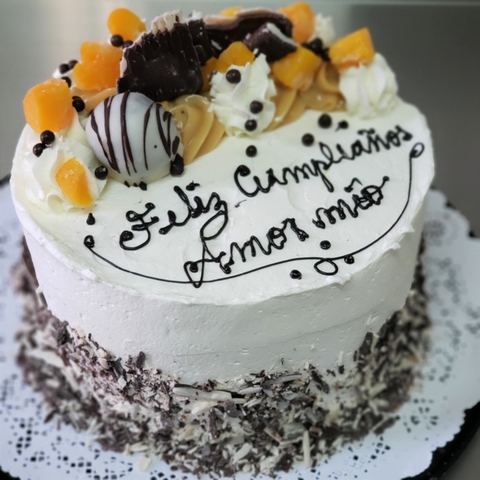 Feliz Cumpleaños
Amor mío